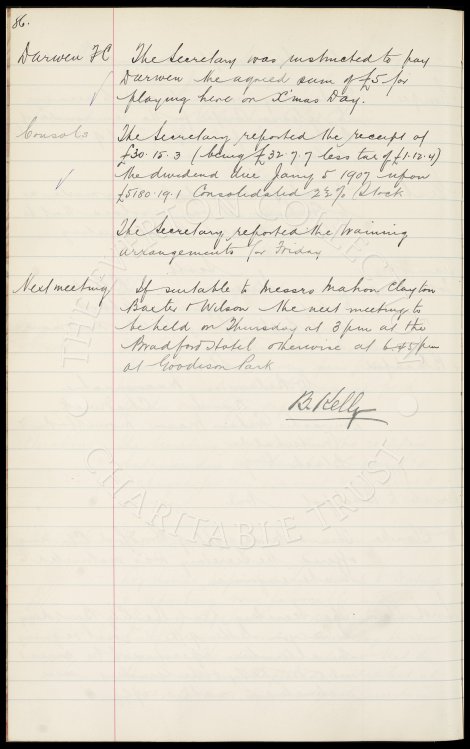 86.
Darwen FC The Secretary was instructed to pay
Darwen the agreed sum of £5 for
playing here on X'mas Day.
Consols The Secretary reported the receipt of
£30.15.3 (being £32.7.7 less tax of £1.12.4)
the dividend due Jany 5 1907 upon
£5180.19.1 Consolidated 2½% Stock
The Secretary reported the training
arrangements for Friday
Next meeting If suitable to Messrs Mahon Clayton
Baxter & Wilson the next meeting to
be held on Thursday at 3 pm at the
Bradford Hotel otherwise at 6.45 pm
at Goodison Park
B. Kelly
THE EVERTON COLLECTION
CHARITABLE TRUST